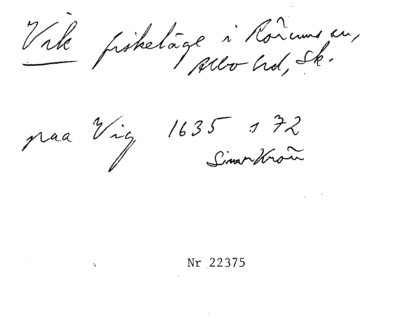 Vik fiskeläge i Rörums sn,
Albo hd, Sk.
paa Vig 1635 s 72
Nr 22375